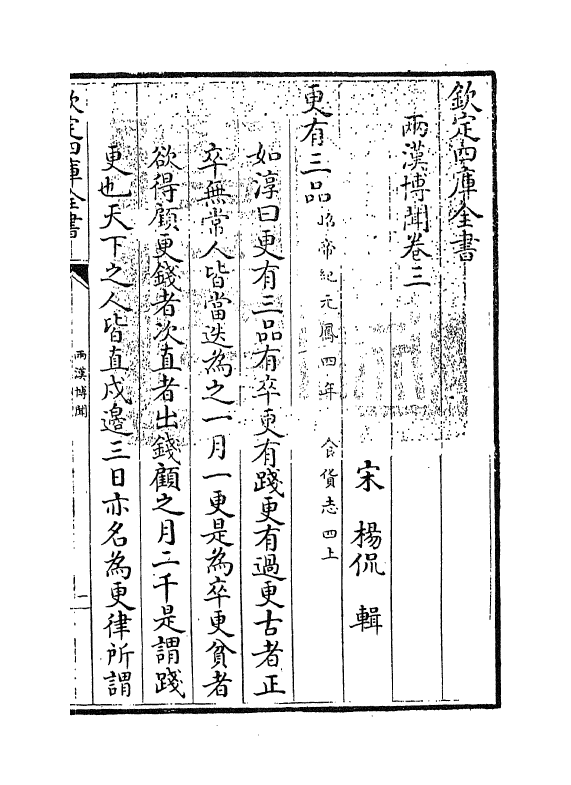 欽定四庫全書
兩漢博聞卷三
宋 楊侃 輯
更有三品昭帝紀元鳳四年 食貨志四上
如淳曰更有三品有卒更有踐更有過更古者正
卒無常人皆當迭為之一月一更是為卒更貧者
欲得顧更錢者次直者出錢顧之月二千是謂踐
更也天下之人皆直戍邊三日亦名為更律所謂
欽定四庫全書
兩漢博聞
一